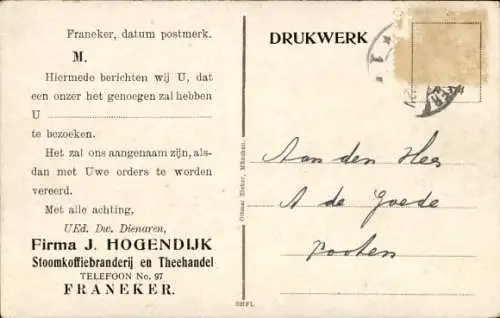 Franeker, datum postmerk.
M.
Hiermede berichten wij U, dat
een onzer het genoegen zal hebben
U
te bezoeken.
Het zal ons aangenaam zijn, als-
dan met Uwe orders te worden
vereerd.
Met alle achting,
UEd. Dw. Dienaren,
Firma J. HOGENDIJK
Stoomkoffiebranderij en Theehandel
TELEFOON No. 97
FRANEKER.
Ottmar Zieher, München.
DRUKWERK
1
Aan den Heer
A de Goede
Pooten